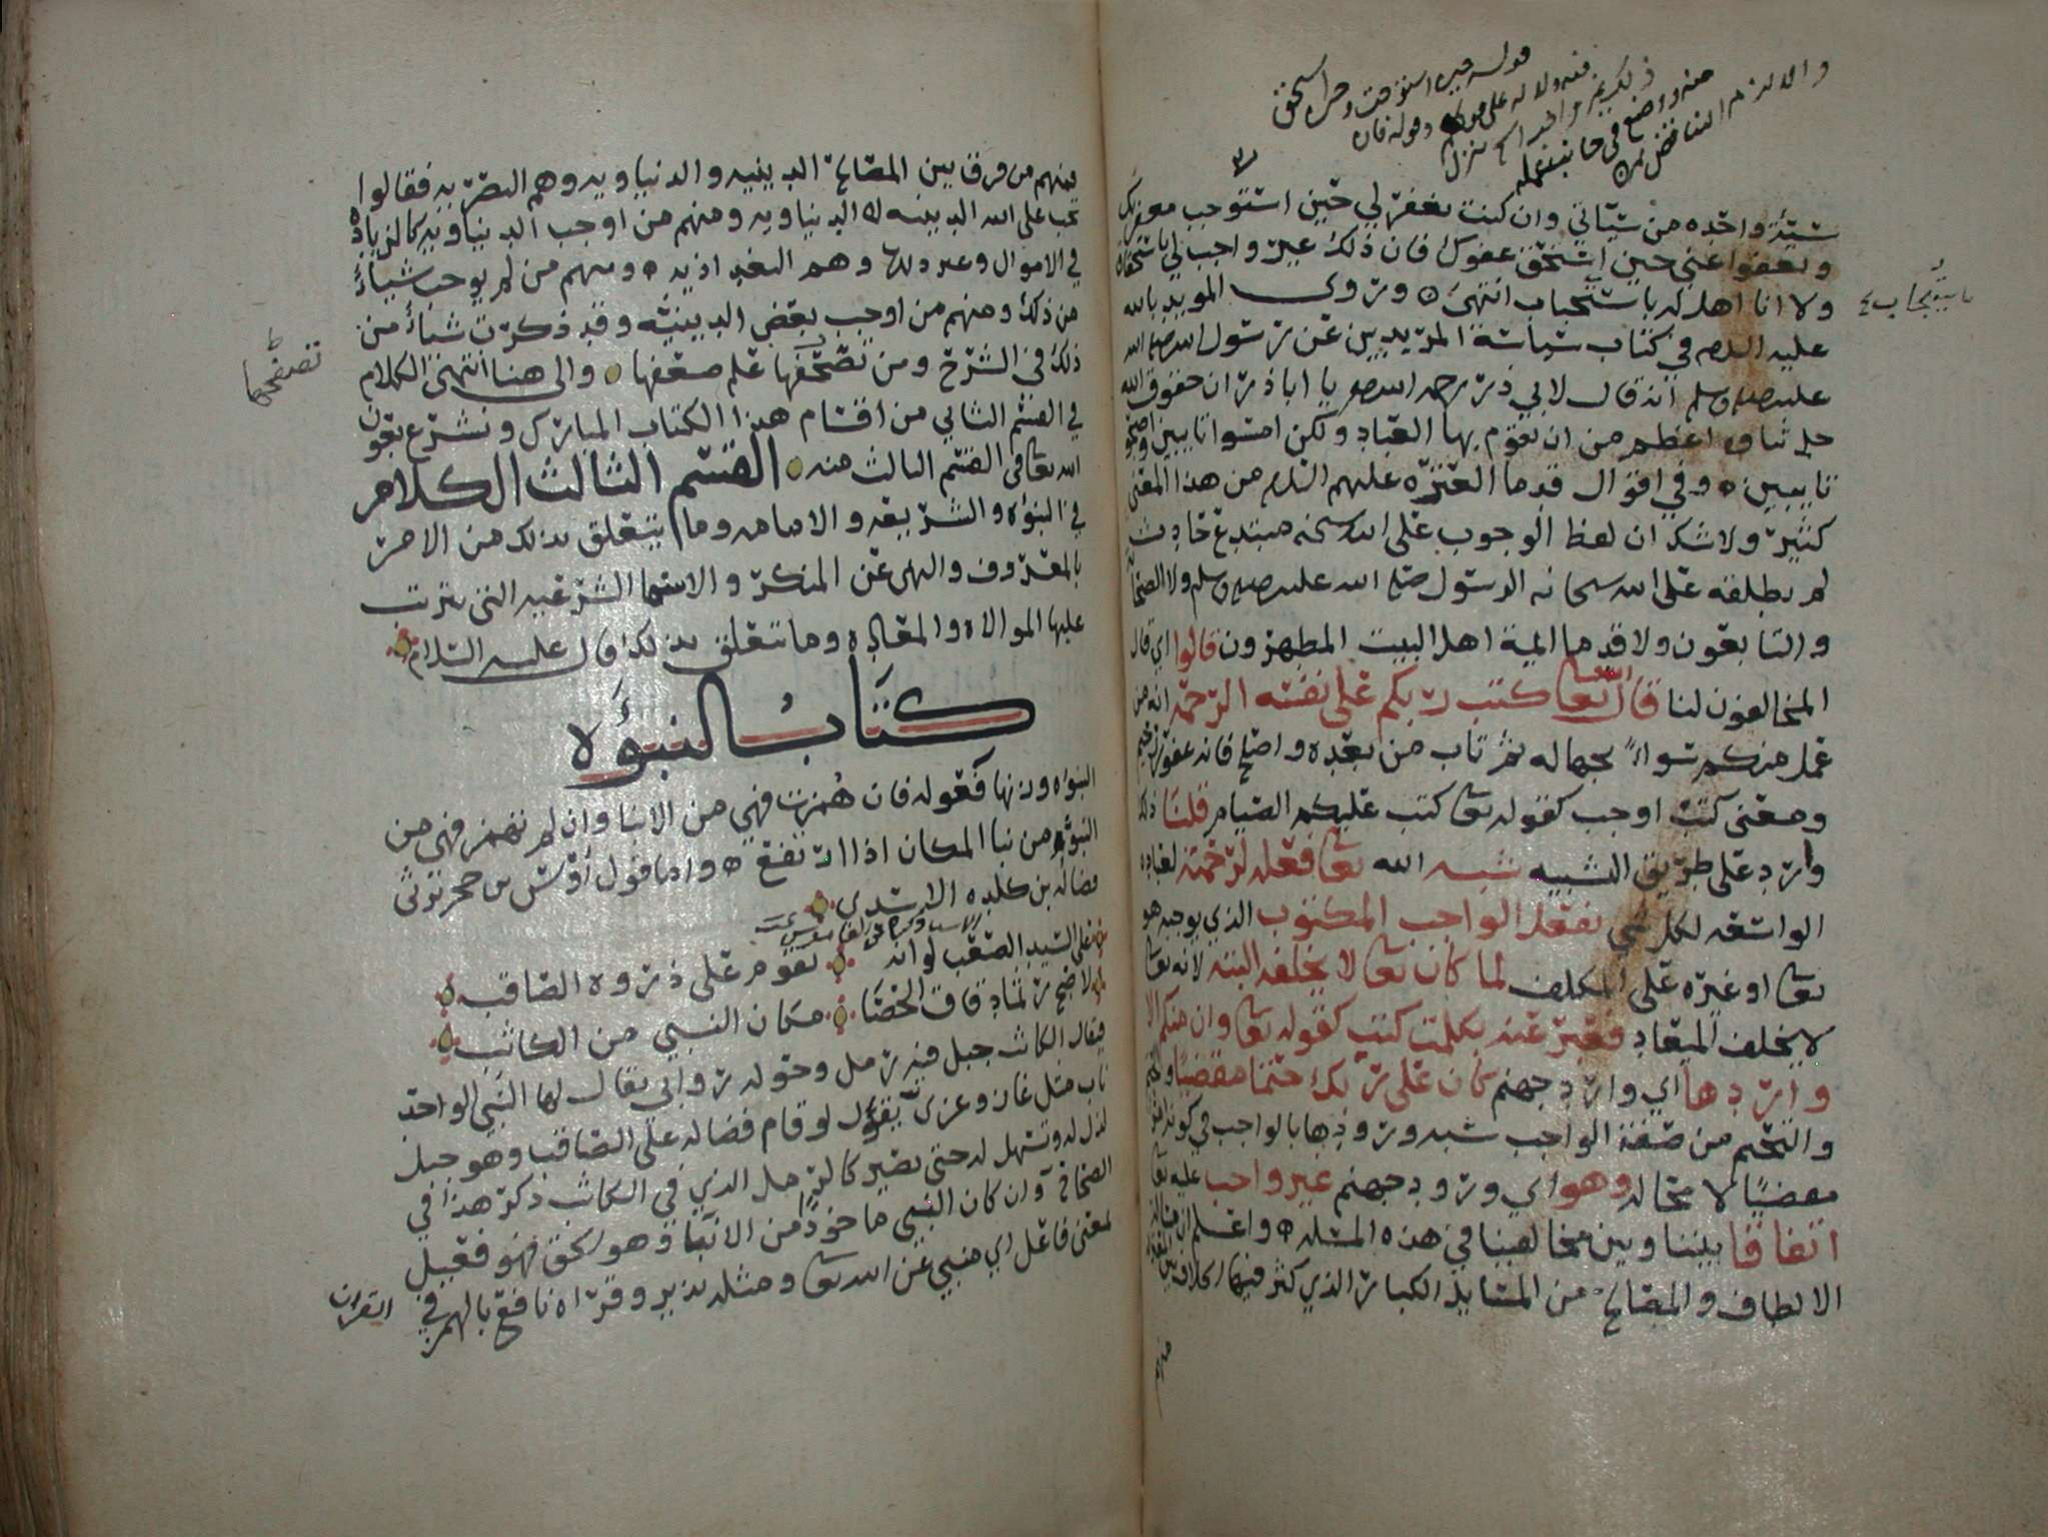 قوله حين استوجب وحين استحق
سيئة واحده من سيّاتي وان كنت تغفر لي حين استوجب مغفرتك
وتعفوا عني حين استحق عفوك فان ذلك غير واجب لي باستحقاق
ولا انا اهل له باستيجاب انتهى وروى المويد بالله
باستيجاب
عليه السلم في كتاب سياسة المريدين عن رسول الله صلى الله
عليه وسلم انه قال لابي ذر رحمه الله يا اباذر ان حقوق الله
جل ثناوه اعظم من ان يقوم بها العباد ولكن امسوا تايبين واصبحوا
تايبين وفي اقوال قدما العتره عليهم السلم من هذا المعنى
كثير ولا شك ان لفظ الوجوب على الله سبحنه مبتدع حادث
لم يطلقه على الله سبحانه الرسول صلى الله عليه وسلم ولا الصحابة
والتابعون ولا قدما ايمة اهل البيت المطهرون قالوا اي قال
المخالفون لنا قال الله تعا كتب ربكم على نفسه الرحمة انه من
عمل منكم سواً بجهاله ثم تاب من بعده واصلح فانه غفور رحيم
ومعنى كتب اوجب كقوله تعا كتب عليكم الصيام قلنا ذلك
وارد على طريق التشبيه شبه الله تعا فعله لرحمته لعباده
الواسعه لكل شي بفعل الواجب المكتوب الذي يوجبه هو
تعا او غيره على المكلف لما كان تعا لا يخلفه البته لانه تعا
لا يخلف الميعاد فعبر عنه بكلمت كتب كقوله تعا وان منكم الا
واردها اي وارد جهنم كان على ربك حتما مقضيًا
والتحتم من صفة الواجب شبه ورودها بالواجب في كونه
مقضيًا لا محاله وهو اي ورود جهنم غير واجب عليه تعا
اتفاقا بيننا وبين مخالفينا في هذه المسله واعلم ان مسالة
الالطاف والمصالح من المسايل الكبار الذي كثر فيها الخلاف بين
فمنهم من فرق بين المصالح الدينيه والدنياويه وهم البصريه فقالوا
تجب على الله الدينيه لا الدنياويه ومنهم من اوجب الدنياويه كالزياده
في الاموال وغير ذلك وهم البغداذيه ومنهم من لم يوجب شياً
من ذلك ومنهم من اوجب بعض الدينيه وقد ذكرت شياً من
ذلك في الشرح ومن تصحفها علم ضعفها والى هنا انتهى الكلام
تصفحها
في القسم الثاني من اقسام هذا الكتاب المبارك ونشرع بعون
الله تعا في القسم الثالث منه القسم الثالث الكلام
في النبوه والشريعه والامامه وما يتعلق بذلك من الامر
بالمعروف والنهي عن المنكر والاسما الشرعيه التي يترتب
عليها الموالاه والمعاداه وما يتعلق بذلك قال عليه السلام
كتاب النبوَّه
النبواه وزنها فعوله فان هُمزت فهي من الانبا وان لم تهمز فهي من
النبوه من نبا المكان اذا ارتفع واما قول اوس بن حجر يرثي
فضاله بن كلده الاسدي
على السيد الصعب لو انه يقوم على ذروه الصاقب
لاصبح رتمًا دقاق الحصا مكان النبي من الكاثب
فيقال الكاثب جبل فيه رمل وحوله روابي يقال لها النبي الواحد
ناب مثل غاز وغزى يقول لو قام فضاله على الصاقب وهو جبل
لذل له وتسهل له حتى يصير كالرمل الذي في الكاثب ذكر هذا في
الصحاح وان كان النبي ماخوذًا من الانبا وهو الحق فهو فعيل
بمعنى فاعل اي منبي عن الله تعا ومثله نذير وقراه نافع بالهمز في
القران